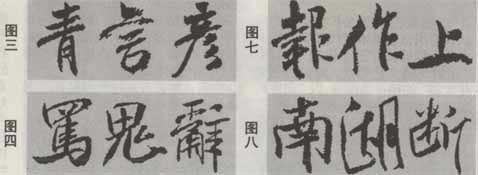 图三 青言彦
图七 報作上
图四 罵鬼辭
图八 南湖断